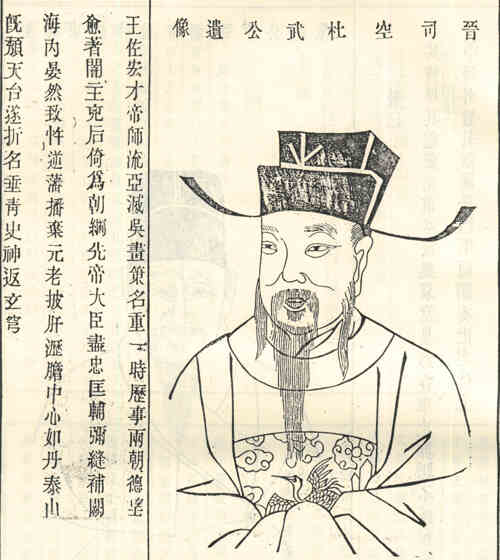 晉司空杜武公遺像
王佐宏才帝師流亞滅吳畫策名重一時歷事兩朝德望
愈著闇主兇后倚爲朝綱先帝大臣盡忠匡輔彌縫補闕
海內晏然致忤逆藩播棄元老披肝瀝膽中心如丹泰山
旣頹天台遂折名垂青史神返玄穹